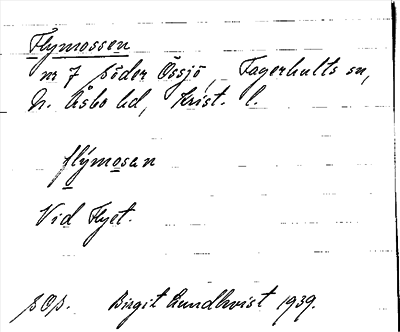 Flymossen
nr 7 Söder Össjö, Fagerhults sn,
N. Åsbo hd, Krist. l.
flýmosan
Vid Flyet.
pOp. Birgit Lundkvist 1939.